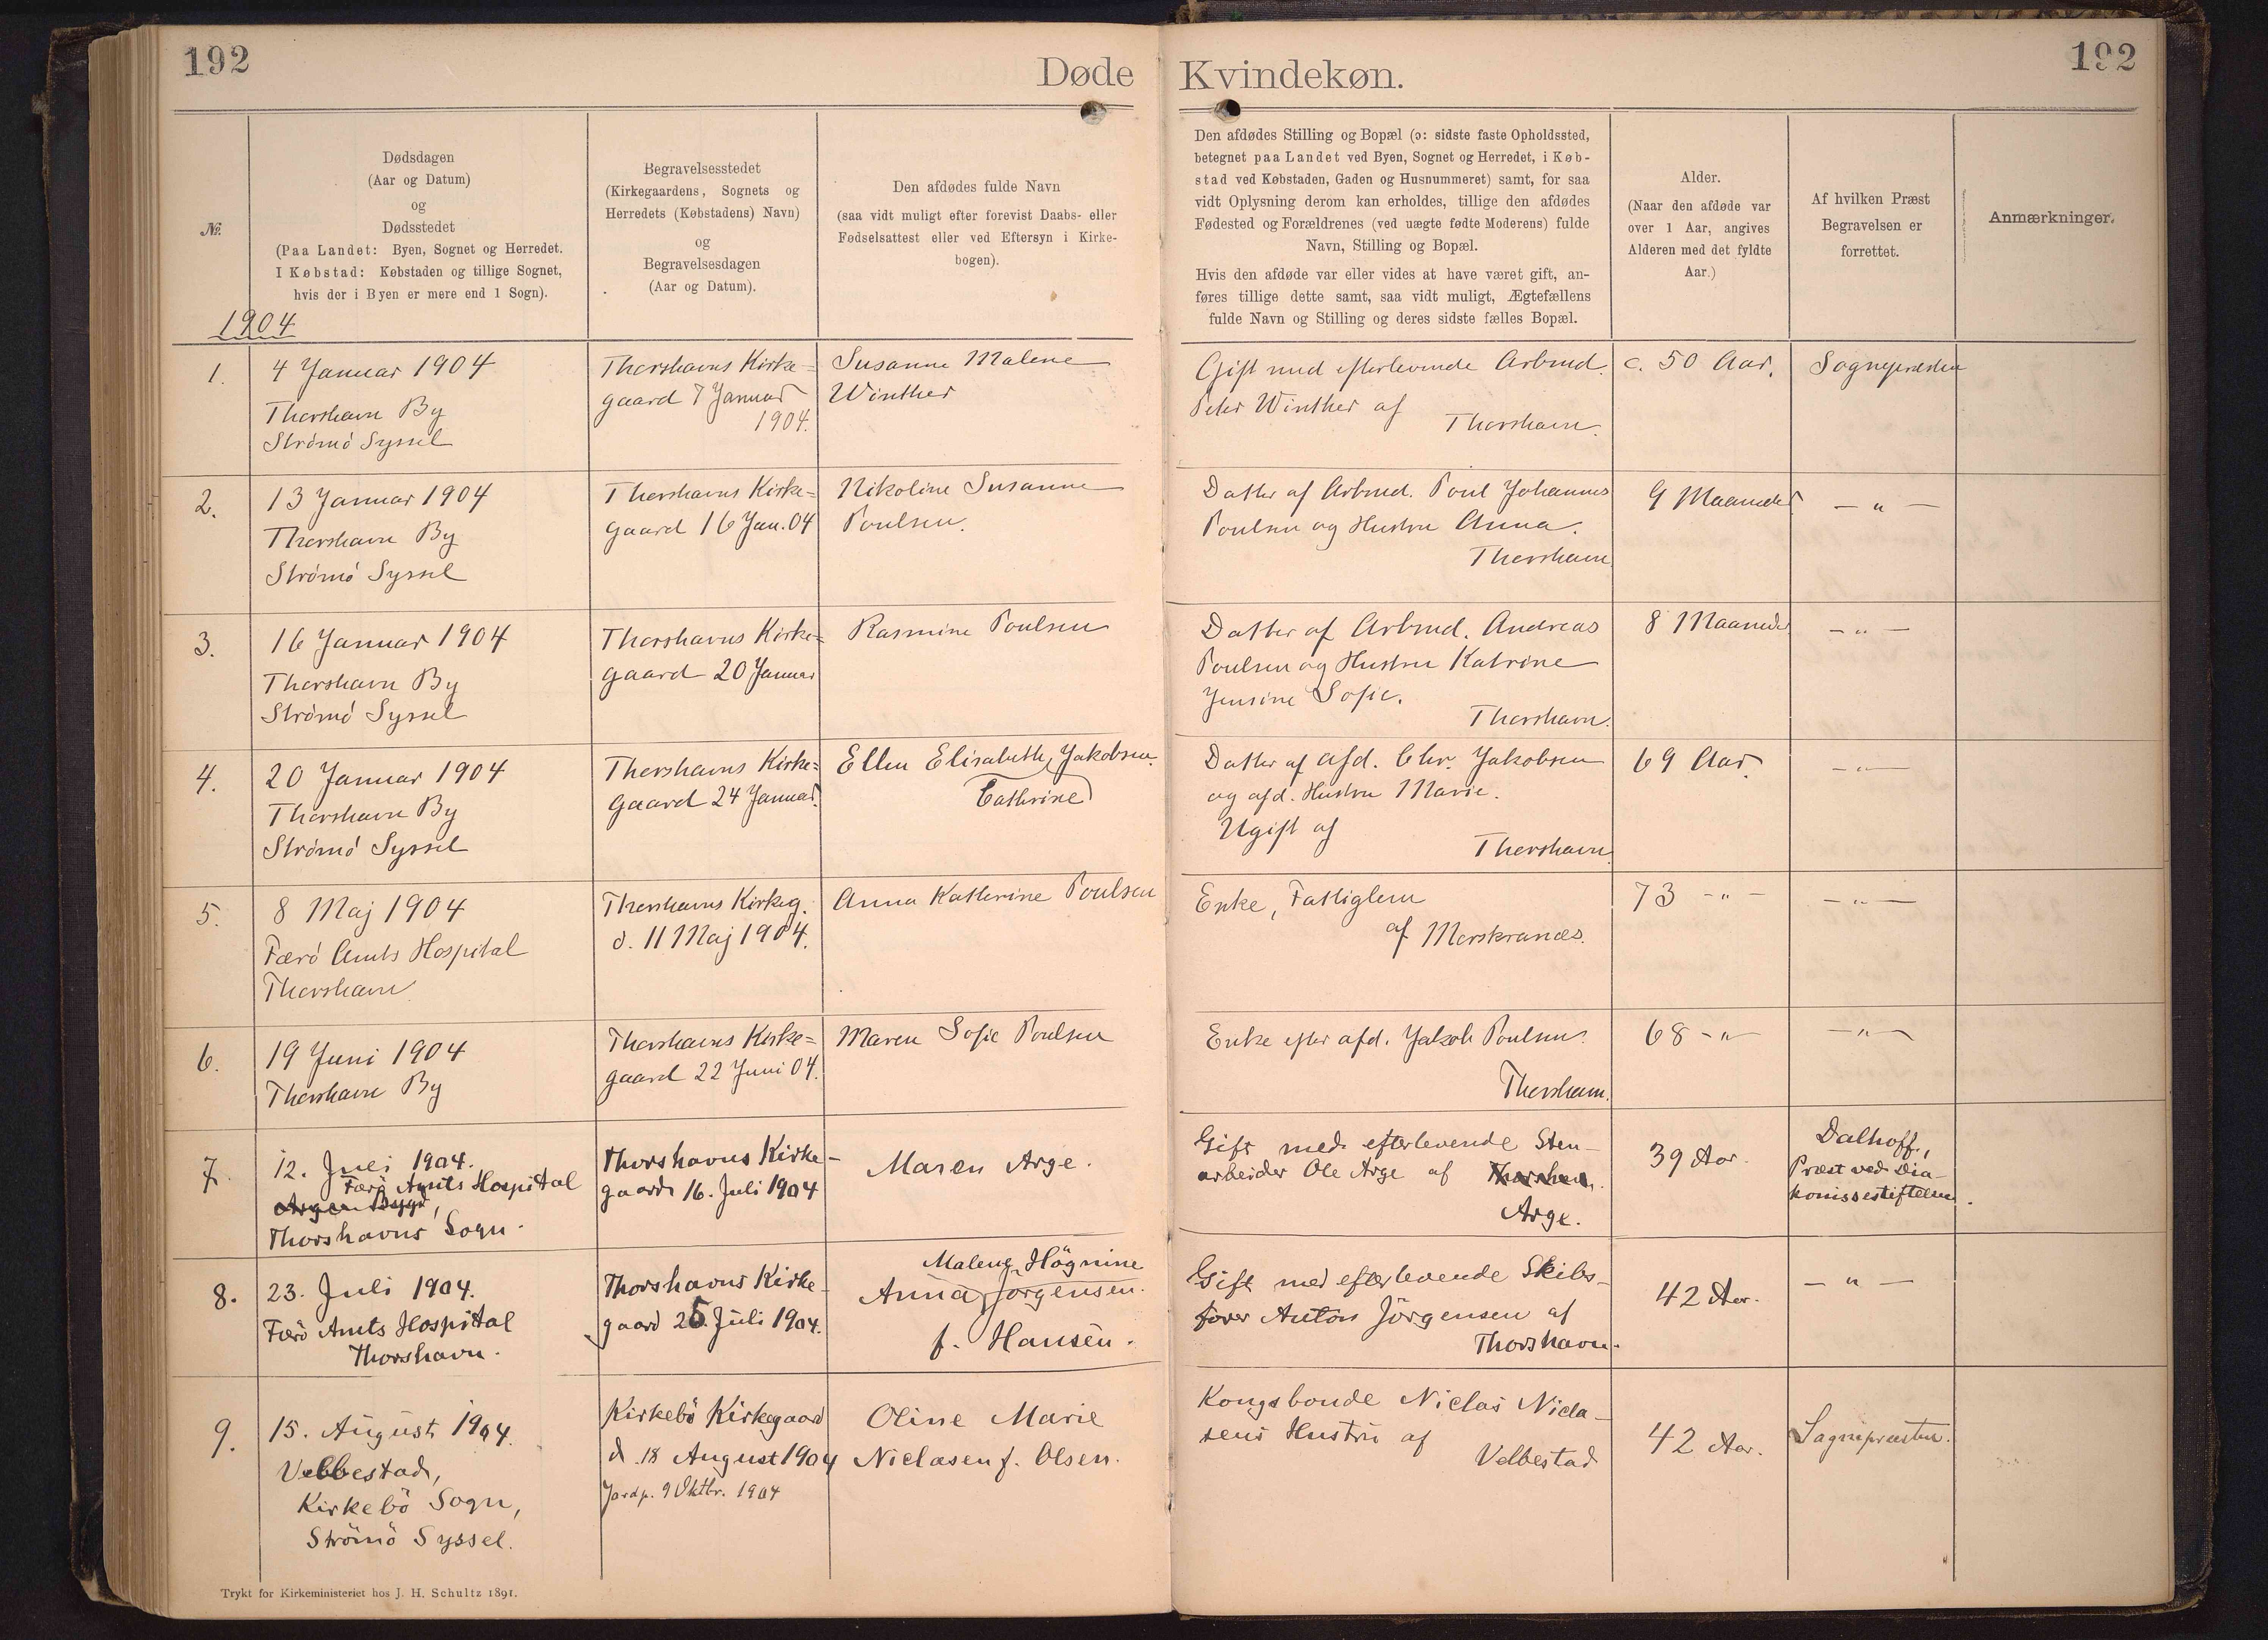 192
Døde
Kvindekøn.
192
№.
Dødsdagen
(Aar og Datum)
og
Dødsstedet
(Paa Landet: Byen, Sognet og Herredet.
I Købstad: Købstaden og tillige Sognet,
hvis der i Byen er mere end 1 Sogn).
Begravelsesstedet
(Kirkegaardens, Sognets og
Herredets (Købstadens) Navn)
og
Begravelsesdagen
(Aar og Datum).
Den afdødes fulde Navn
(saa vidt muligt efter forevist Daabs- eller
Fødselsattest eller ved Eftersyn i Kirke-
bogen).
Den afdødes Stilling og Bopæl (ɔ: sidste faste Opholdssted,
betegnet paa Landet ved Byen, Sognet og Herredet, i Køb-
stad ved Købstaden, Gaden og Husnummeret) samt, for saa
vidt Oplysning derom kan erholdes, tillige den afdødes
Fødested og Forældrenes (ved uægte fødte Moderens) fulde
Navn, Stilling og Bopæl.
Hvis den afdøde var eller vides at have været gift, an-
føres tillige dette samt, saa vidt muligt, Ægtefællens
fulde Navn og Stilling og deres sidste fælles Bopæl.
Alder.
(Naar den afdøde var
over 1 Aar, angives
Alderen med det fyldte
Aar.)
Af hvilken Præst
Begravelsen er
forrettet.
Anmærkninger.
1904
1.
4 Januar 1904
Thorshavn By
Strömö Syssel
Thorshavns Kirke=
gaard 7 Januar
1904.
Susanne Malene
Winther
Gift med efterlevende Arbmd.
Peter Winther af
Thorshavn.
c. 50 Aar.
Sognepræsten
2.
13 Januar 1904
Thorshavn By
Strömö Syssel
Thorshavns Kirke=
gaard 16 Jan. 04
Nikoline Susanne
Poulsen.
Datter af Arbmd. Poul Johannes
Poulsen og Hustru Anna.
Thorshavn
9 Maaneder
- " -
3.
16 Januar 1904
Thorshavn By
Strömö Syssel
Thorshavns Kirke=
gaard 20 Januar
Rasmine Poulsen
Datter af Arbmd. Andreas
Poulsen og Hustru Katrine
Jensine Sofie.
Thorshavn.
8 Maaneder
- " -
4.
20 Januar 1904
Thorshavn By
Strömö Syssel
Thorshavns Kirke=
gaard 24 Januar.
Ellen Elisabeth Jakobsen.
Cathrine
Datter af afd. Chr. Jakobsen
og afd. Hustru Marie.
Ugift af
Thorshavn.
69 Aar.
- " -
5.
8 Maj 1904
Færö Amts Hospital
Thorshavn
Thorshavns Kirkeg.
d. 11 Maj 1904.
Anna Kathrine Poulsen
Enke, Fattiglem
af Morskranes.
73 - " -
- " -
6.
19 Juni 1904
Thorshavn By
Thorshavns Kirke=
gaard 22 Juni 04.
Maren Sofie Poulsen
Enke efter afd. Jakob Poulsen.
Thorshavn.
68 - " -
- " -
7.
12. Juli 1904.
Færö Amts Hospital
Argen Bygd,
Thorshavns Sogn.
Thorshavns Kirke-
gaard 16. Juli 1904
Maren Arge.
Gift med efterlevende Sten-
arbeider Ole Arge af Thorshavn.
Arge.
39 Aar.
Dalhoff,
Præst ved Dia-
konissestiftelsen.
8.
23. Juli 1904.
Færö Amts Hospital
Thorshavn.
Thorshavns Kirke-
gaard 25. Juli 1904.
Malene Högnine
Anna Jörgensen.
f. Hansen.
Gift med efterlevende Skibs-
fører Anton Jörgensen af
Thorshavn.
42 Aar.
- " -
9.
15. August 1904.
Velbestad,
Kirkebö Sogn,
Strömö Syssel.
Kirkebö Kirkegaard
d. 18 August 1904
Jordp. 9 Oktbr. 1904
Oline Marie
Niclasen f. Olsen.
Kongsbonde Niclas Nicla-
sens Hustru af
Velbestad
42 Aar.
Sognepræsten.
Trykt for Kirkeministeriet hos J. H. Schultz 1891.